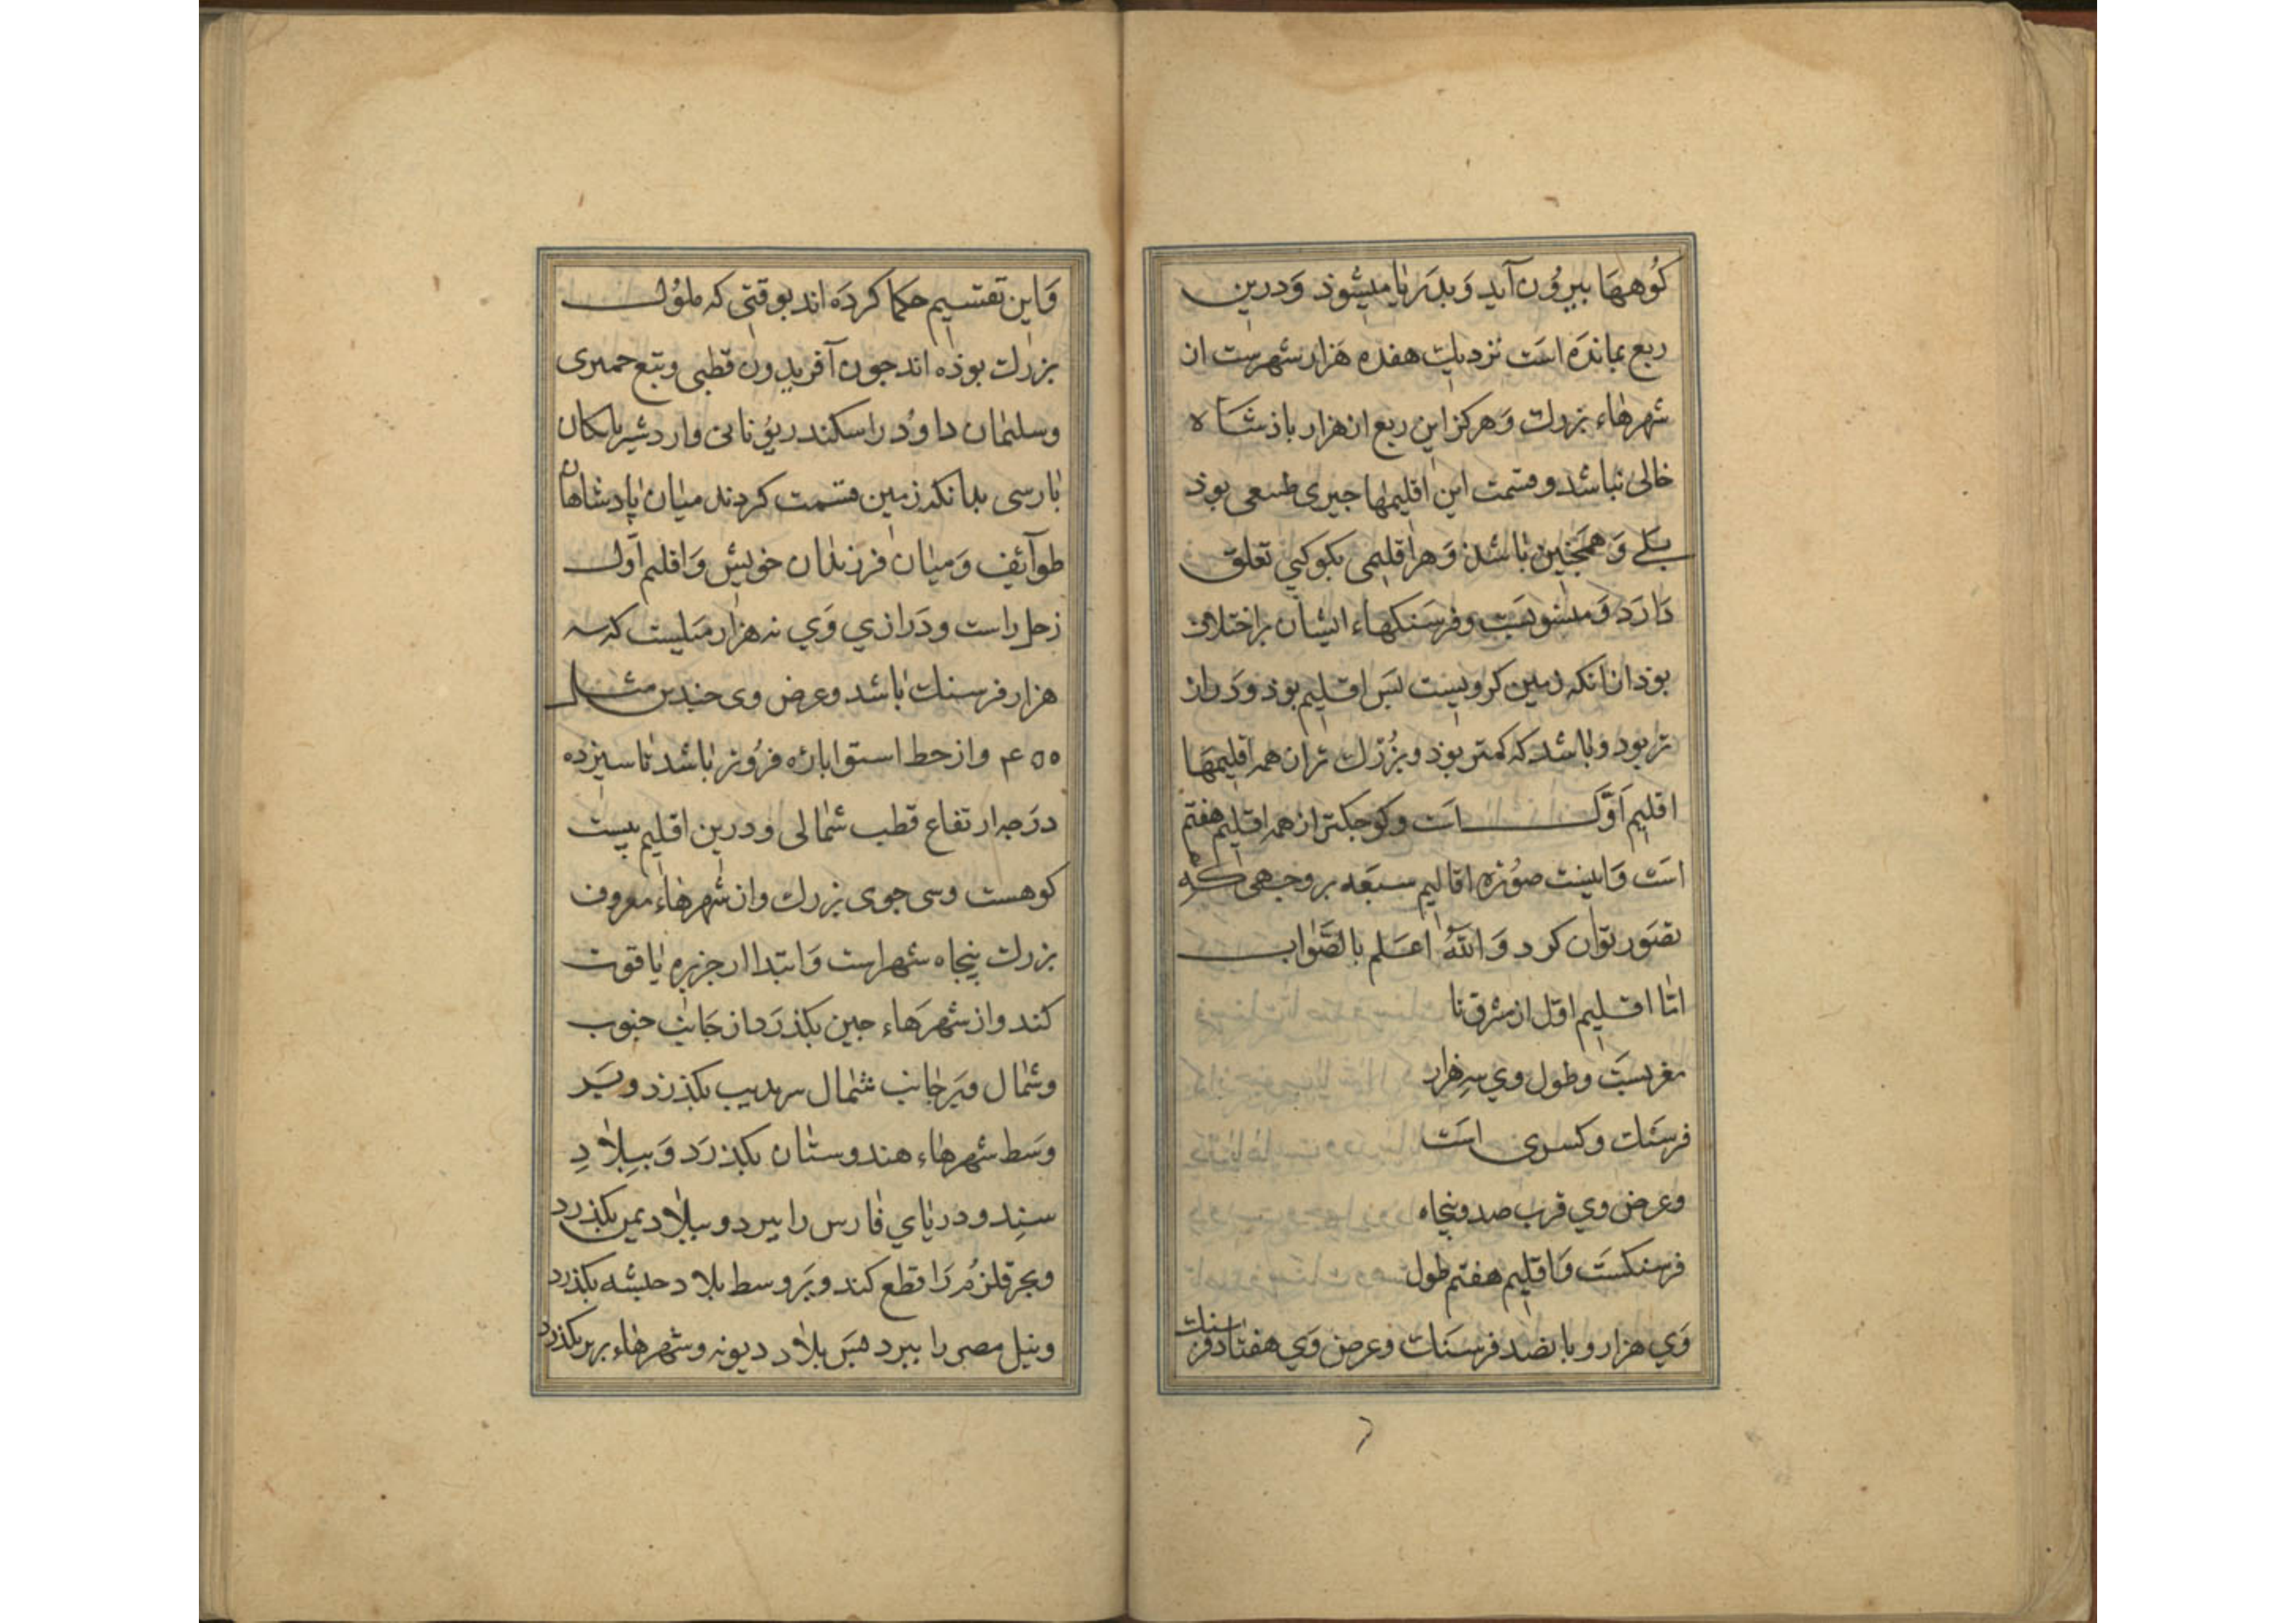 کوُههَا بیروُن آید وَ بدَریا میشوذ وَ درین
ربع بماندَه است نزدیک هفده هَزار شهرست ان
شهرهاء بزرک وَ هرکز این ربع از هزار باذشاه
خالی نباشد و قسمت این اقلیمها جیزی طبیعی بوذ
بلے وَ همچنین باشد وَ هر اقلیمی بکوکبی تعلق
دَارَد وَ منسوبست و فرسَنکهاء ایشان بر اختلاف
بوذ از انکه زمین کرویست بَس اقلیم بوذ وَ دَراز
تر بود و باشد که کمتر بوذ و بزُرک تر از همه اقلیمهَا
اقلیم اوّل است و کوجکتر از همه اقلیم هفتم
است وَ اینست صوُرَه اقالیم سبعَه بر وجهی که
تصَور توان کرد وَ اللهُ اعلم بالصَّواب
امّا اقلیم اوّل از مشرق تا
مغربست وَ طول وی سه هزار
فرسنک و کسری است
وعرض وی قرب صد و پنجاه
فرسنکست وَ اقلیم هفتم طول
وَی هزار و بانصَد فرسَنک وعرض وَی هفتاد فرسنک
وَاین تقسیم حکما کردَه اند بوقتی که ملوُک
بزرک بوذه اند جون آفریدون قطبی وتبع حمیری
وسلیمان داوُد را سکندر یوُنانی و اردشیر بابکان
بارسی بدانکه زمین قسمت کردند میان پادشاهان
طوآئف وَ میان فرزندان خویش وَ اقلیم اَول
زحل راست و دَرازی وَی نه هزار میلیست که سه
هزار فرسنک باشد وعرض وی جندین مثال
۴۵۵ و از خط استوا باره فرُوتر باشد تا سیزده
درَجه ارتفاع قطب شمالی ودرین اقلیم بیست
کوهست وسی جوی بزرک وان شهرهاء معروف
بزرک پنجاه شهراست وَ ابتدا از جزیره یاقوت
کند واز شهرهَاء جین بکذرَد از جَانب جنوب
وشمال وبَرجانب شمال سرندیب بکذرَد و بَر
وسَط شهرهاء هندوستان بکذرَد وَ ببِلادِ
سنِد ودریای فارس را ببرد و ببلاد یمن بکذرد
وبحر قلزمُ رَا قطع کند وبَر وسط بلاد حبشه بکذرد
ونیل مصر را ببرد هبَس بلاد دیونه و شهرهاء بربر بکذرد